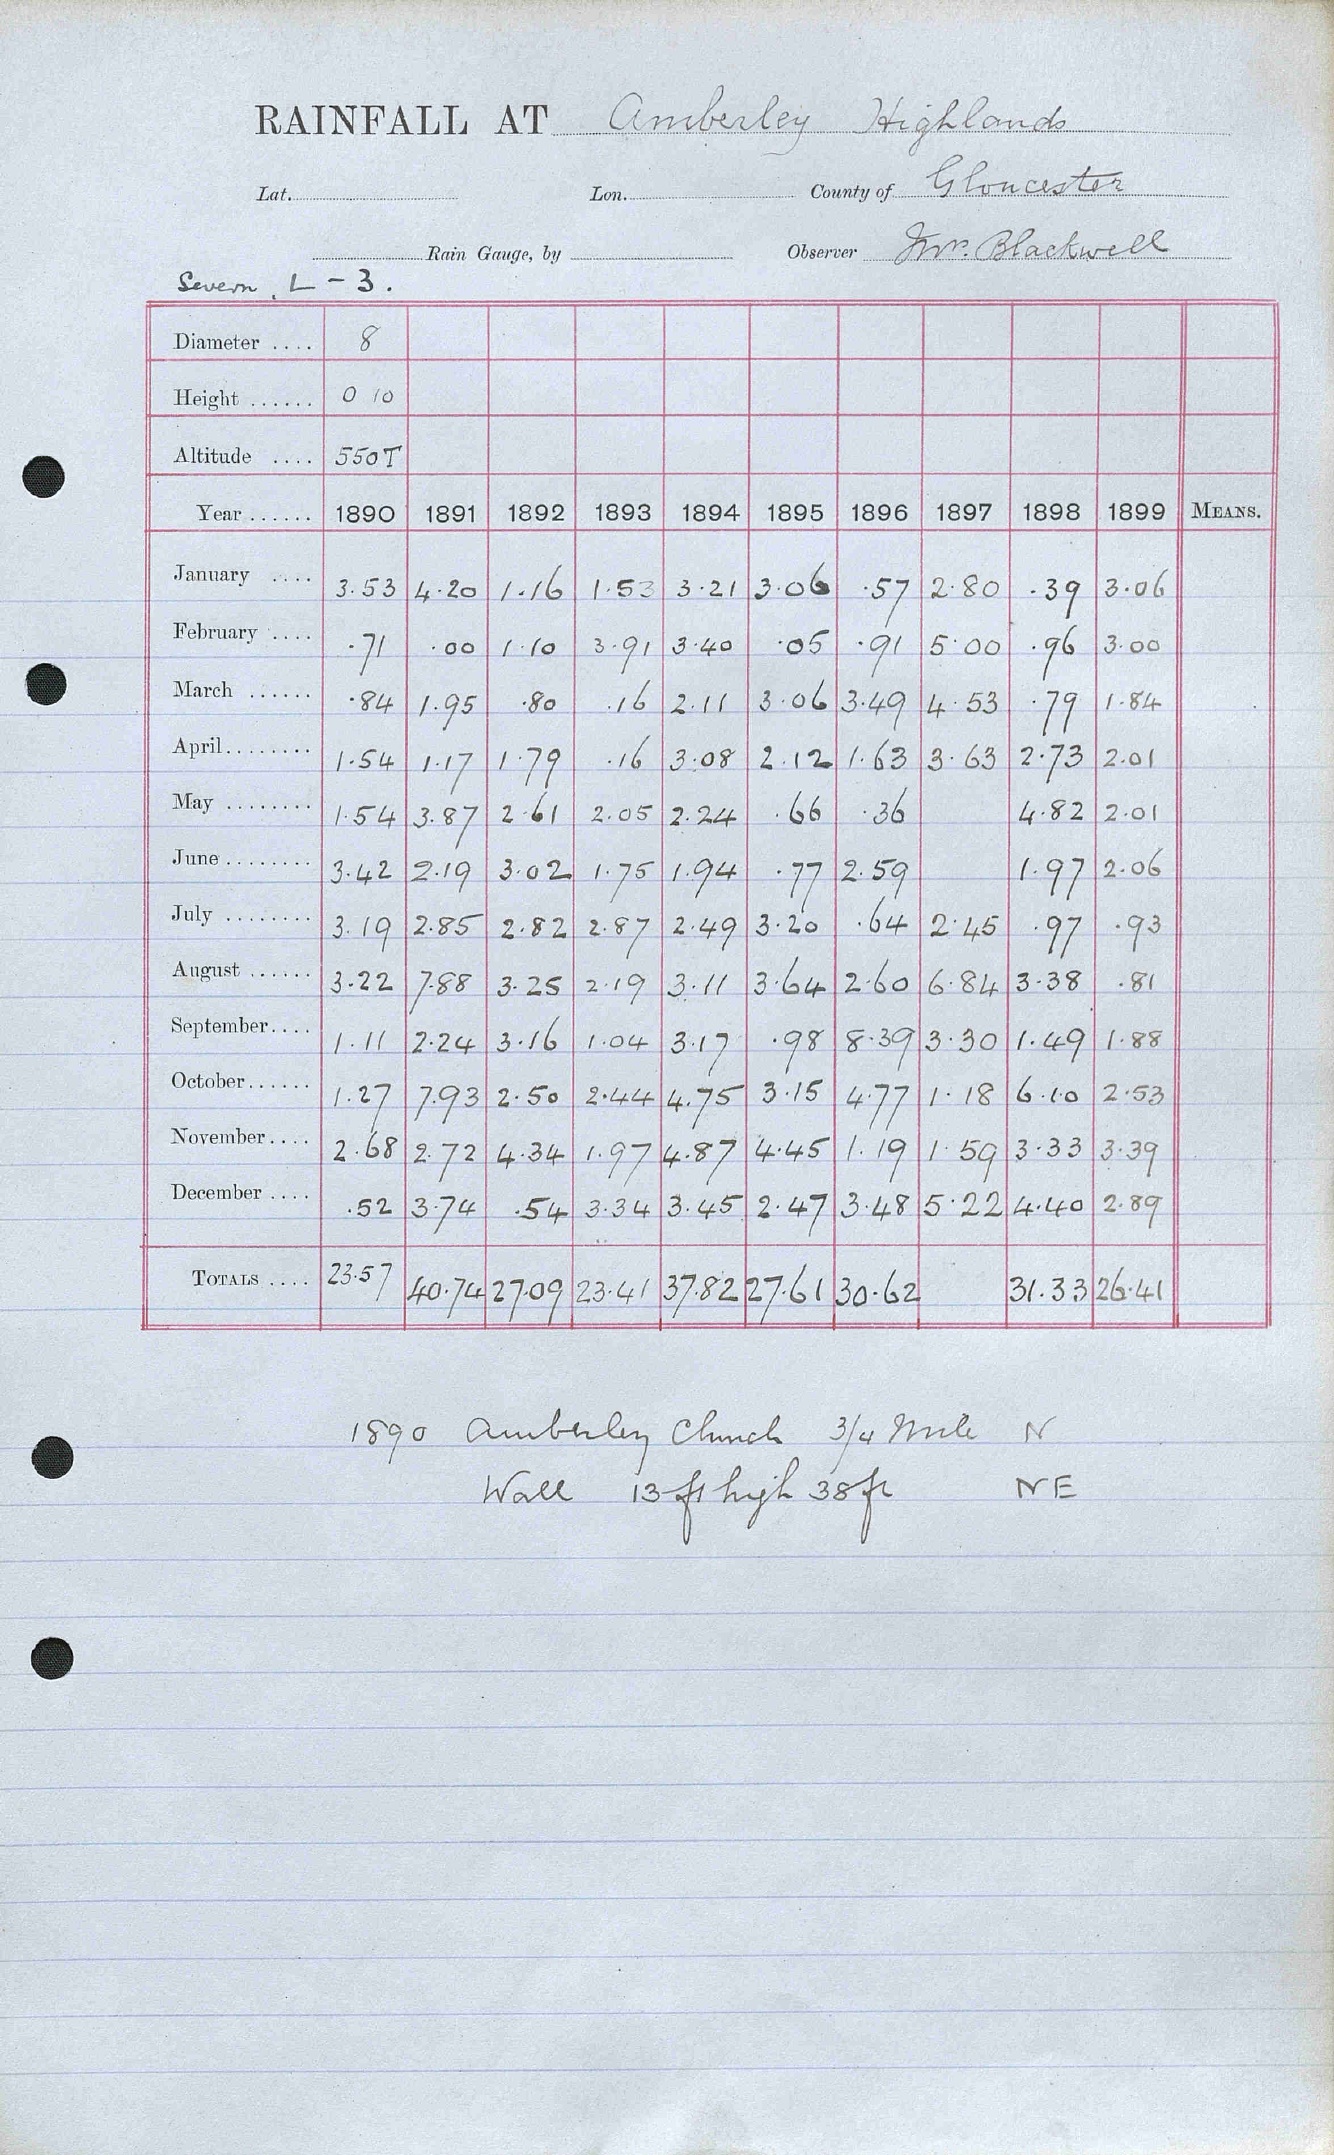 RAINFALL AT Amberley Highlands
Lat. Lon. County of Gloucester
Rain Gauge, by Observer Mr. Blackwell
Severn, L-3.
Diameter .... 8
Height ...... 0 10
Altitude .... 550T
Year ...... 1890 1891 1892 1893 1894 1895 1896 1897 1898 1899 MEANS.
January .... 3.53 4.20 1.16 1.53 3.21 3.06 .57 2.80 .39 3.06
February .... .71 .00 1.10 3.91 3.40 .05 .91 5.00 .96 3.00
March ...... .84 1.95 .80 .16 2.11 3.06 3.49 4.53 .79 1.84
April........ 1.54 1.17 1.79 .16 3.08 2.12 1.63 3.63 2.73 2.01
May ........ 1.54 3.87 2.61 2.05 2.24 .66 .36 4.82 2.01
June ........ 3.42 2.19 3.02 1.75 1.94 .77 2.59 1.97 2.06
July ........ 3.19 2.85 2.82 2.87 2.49 3.20 .64 2.45 .97 .93
August ...... 3.22 7.88 3.25 2.19 3.11 3.64 2.60 6.84 3.38 .81
September.... 1.11 2.24 3.16 1.04 3.17 .98 8.39 3.30 1.49 1.88
October...... 1.27 7.93 2.50 2.44 4.75 3.15 4.77 1.18 6.10 2.53
November.... 2.68 2.72 4.34 1.97 4.87 4.45 1.19 1.59 3.33 3.39
December .... .52 3.74 .54 3.34 3.45 2.47 3.48 5.22 4.40 2.89
TOTALS .... 23.57 40.74 27.09 23.41 37.82 27.61 30.62 31.33 26.41
1890 Amberley Church 3/4 Mile N
Wall 13 ft high 38 ft NE